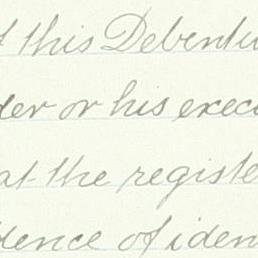 f this Debentu
der or his execu
at the registe
dence of iden